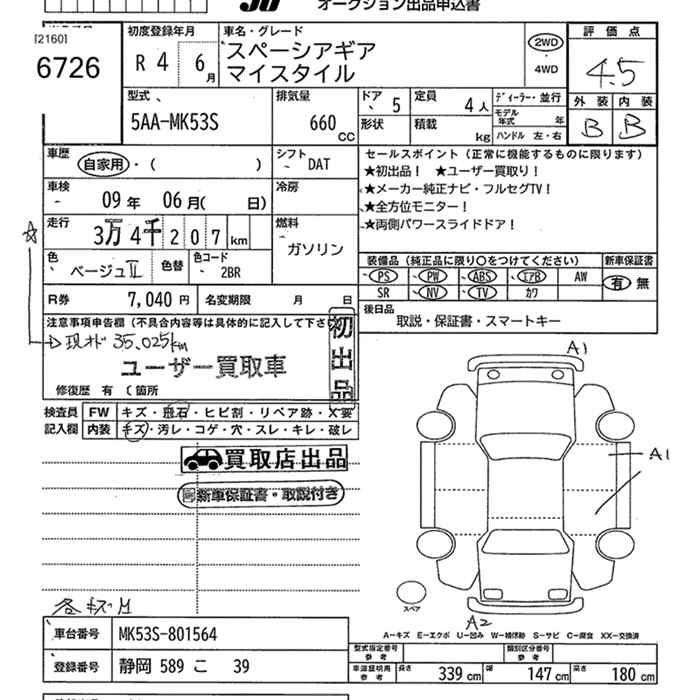 オークション出品申込書
[2160]
6726
初度登録年月
R 4 6月
車名・グレード
スペーシアギア
マイスタイル
2WD
・
4WD
評価点
4.5
外装 内装
B B
型式
5AA-MK53S
排気量
660
CC
ドア 5
形状
定員 4人
積載 kg
ディーラー・並行
モデル年式 年
ハンドル 左・右
車歴
自家用・( )
シフト
DAT
車検
09年 06月( 日)
冷房
走行
3万4千207km
燃料
ガソリン
色
ベージュⅡ
色替
色コード
2BR
R券 7,040円
名変期限 月 日
セールスポイント(正常に機能するものに限ります)
★初出品! ★ユーザー買取り!
★メーカー純正ナビ・フルセグTV!
★全方位モニター!
★両側パワースライドドア!
装備品(純正品に限り○をつけてください)
PS PW ABS エアB AW
SR NV TV カワ
新車保証書
有 無
後日品
取説・保証書・スマートキー
注意事項申告欄(不具合内容等は具体的に記入して下さ
☆→現オド 35,025km
ユーザー買取車
初出品
修復歴 有(箇所
検査員
記入欄
FW キズ・飛石・ヒビ割・リペア跡・X要
内装 キズ・汚レ・コゲ・穴・スレ・キレ・破レ
買取店出品
新車保証書・取説付き
各キズ凹
A1
A1
スペア
A2
A-キズ E-エクボ U-凹み W-補修跡 S-サビ C-腐食 XX-交換済
車台番号 MK53S-801564
登録番号 静岡 589 こ 39
型式指定番号
参考
類別区分番号
参考
車庫証明用
参考
長さ 339cm 幅 147cm 高さ 180cm